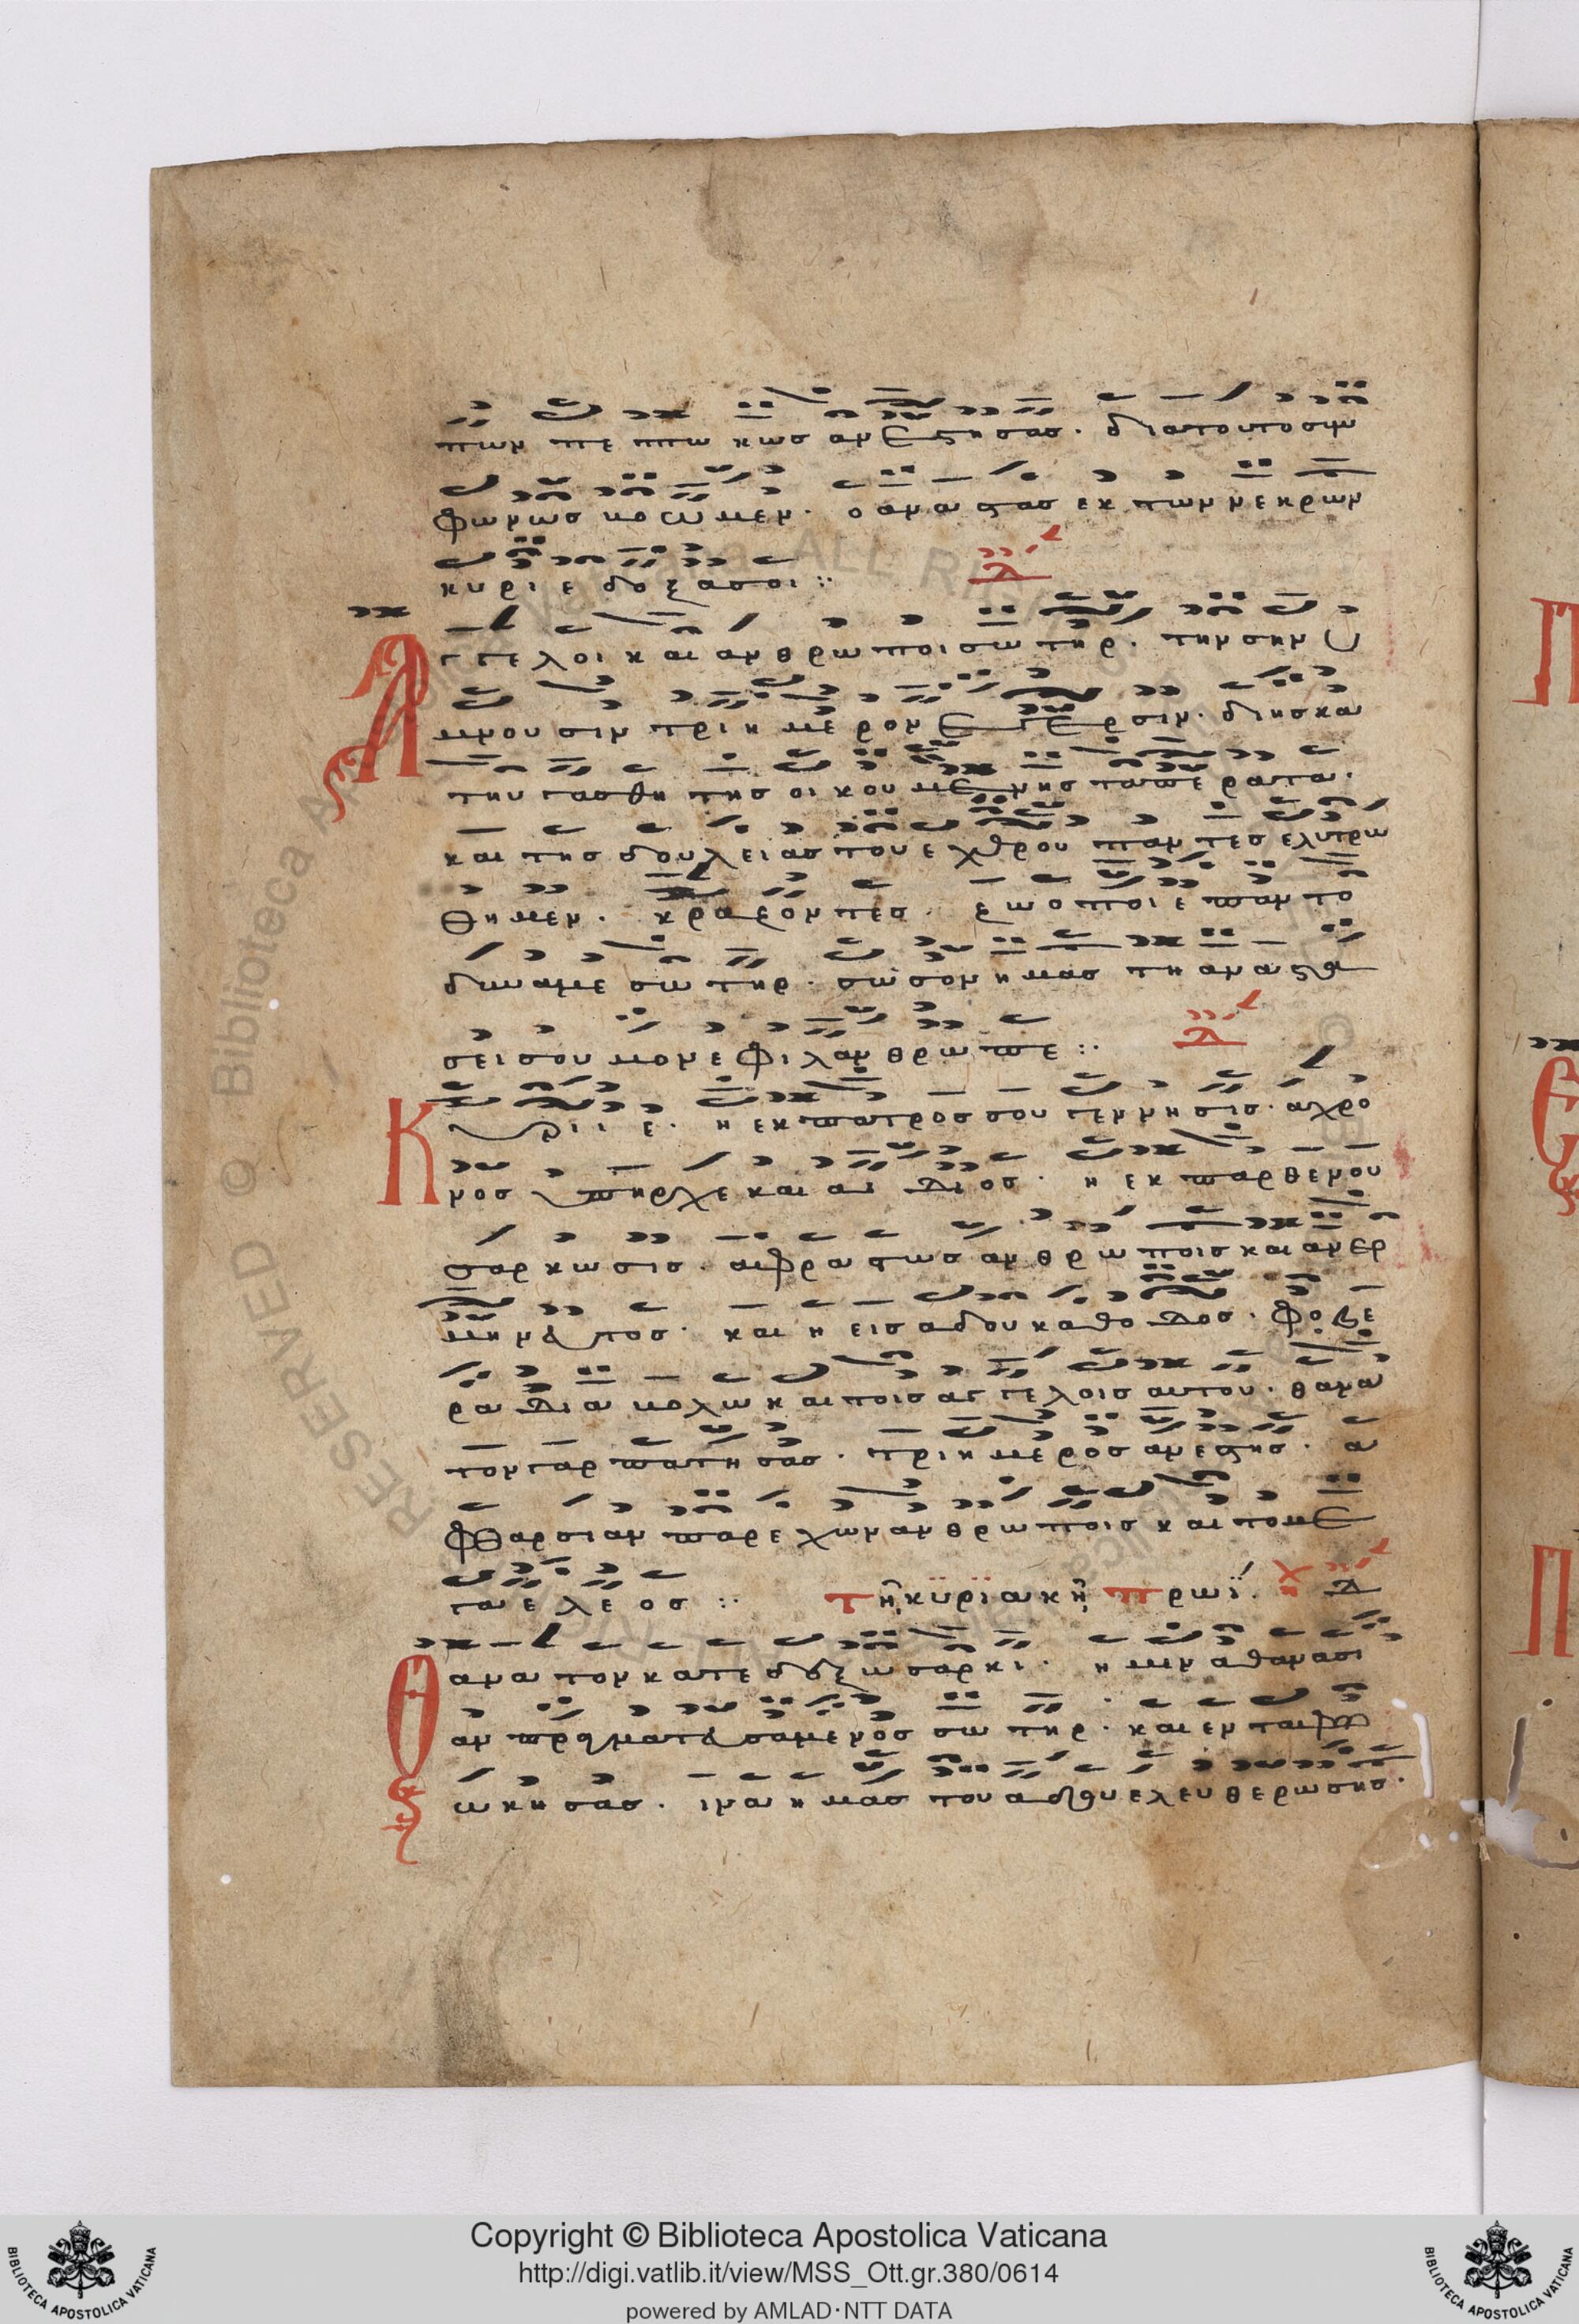 πων πεπτωκως ανεστησας. δια τουτο συμ
φωνως υμνουμεν. ο αναστας εκ των νεκρων
κυριε δοξα σοι :
Αγγελοι και ανθρωποι σωτηρ. την σην υ
μνουσιν τριημερον εγερσιν. δι ης κα
τηυγασθη της οικουμενης τα περατα.
και της δουλειας του εχθρου παντες ελυτρω
θημεν. κραζοντες. ζωοποιε παντο
δυναμε σωτηρ. σωσον ημας τη αναστα
σει σου μονε φιλανθρωπε :
Κυριε. η εκ πατρος σου γεννησις. αχρο
νος υπηρχε και αιδιος. η εκ παρθενου
σαρκωσις. αφραστως ανθρωποις και ανερ
μηνευτος. και η εις αδου καθοδος. φοβε
ρα διαβολω και τοις αγγελοις αυτου. θανα
τον γαρ πατησας. τριημερος ανεστης. α
φθαρσιαν παρεχων ανθρωποις και το με
γα ελεος : τῇ κϋρϊακῇ πρωΐ. Δ
Θανατον κατεδεξω σαρκι. ημιν αθανασι
αν πραγματευσαμενος σωτηρ. και εν ταφω
ωκησας. ινα ημας του αδου ελευθερωσης.
Copyright © Biblioteca Apostolica Vaticana
http://digi.vatlib.it/view/MSS_Ott.gr.380/0614
powered by AMLAD·NTT DATA